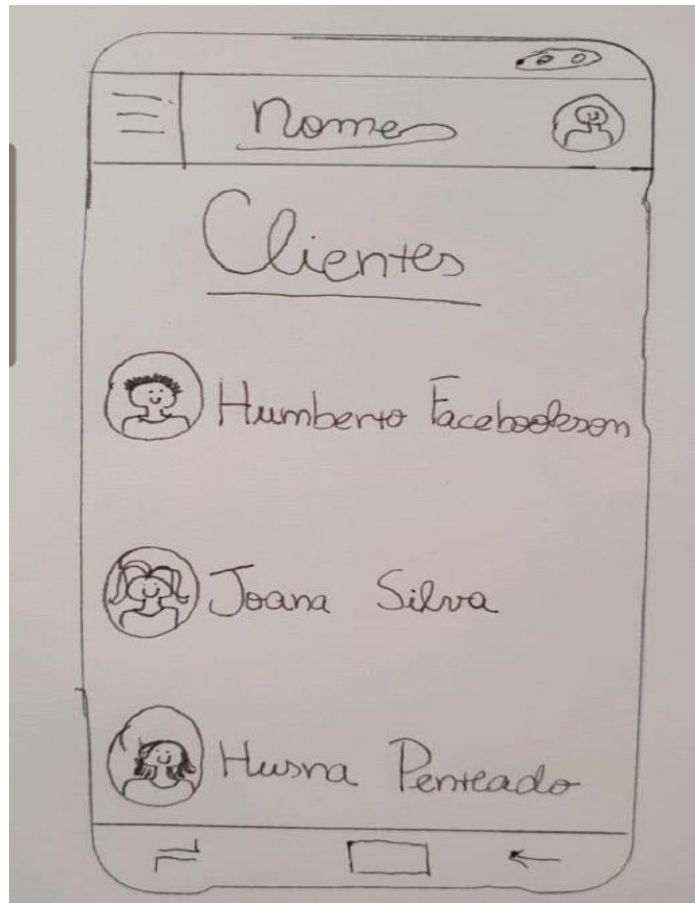 Nome
Clientes
Humberto Facebookson
Joana Silva
Husna Penteado